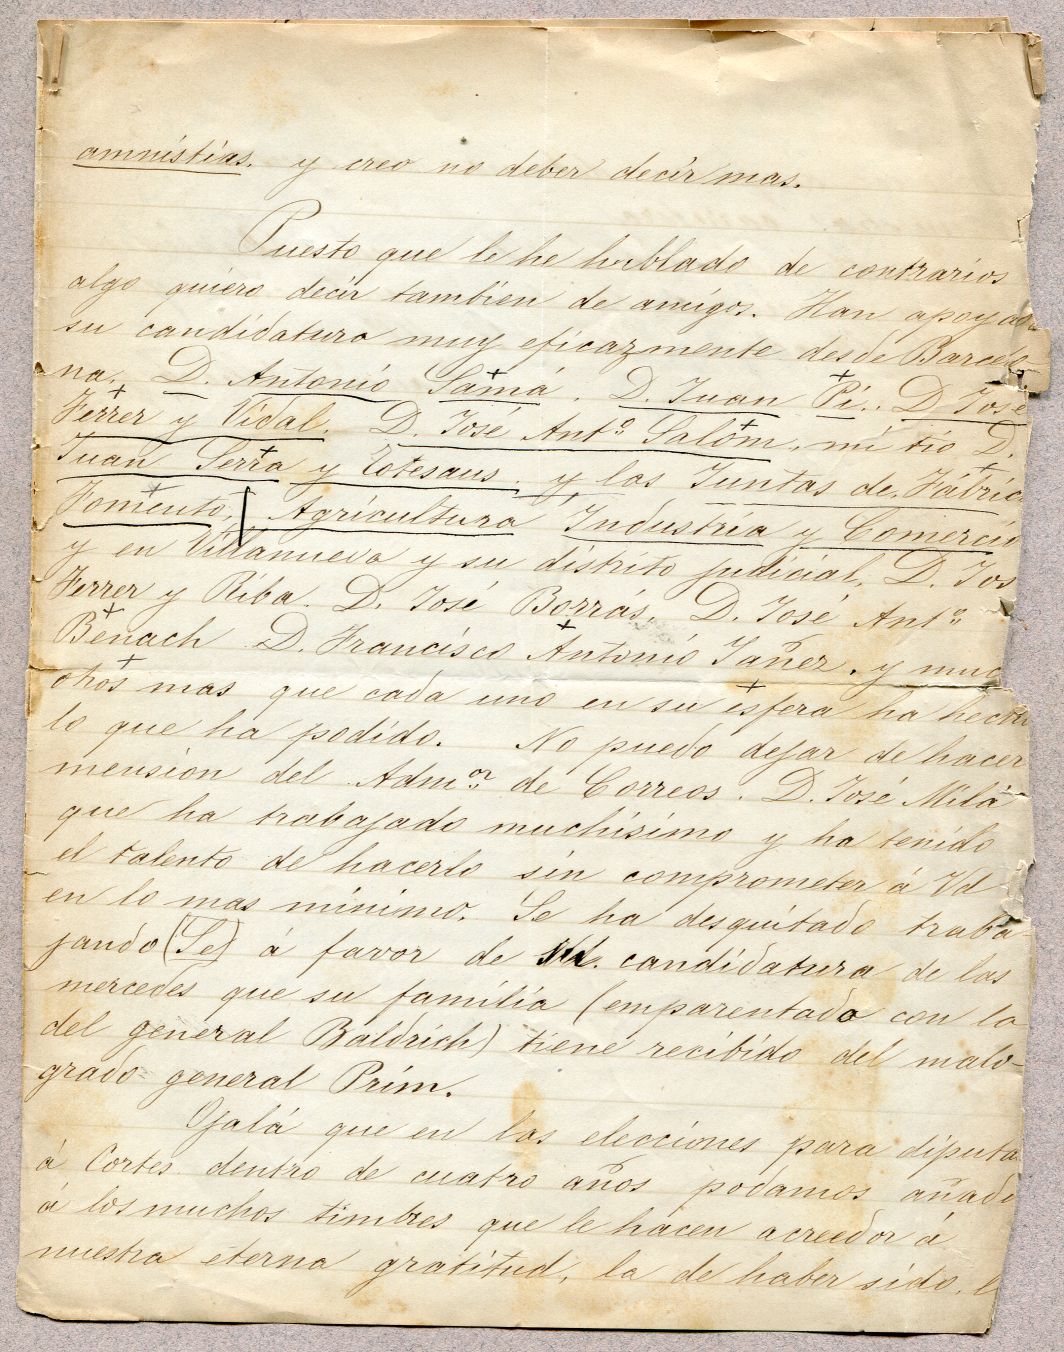 amnistias. y creo no deber decir mas.
Puesto que le he hablado de contrarios
algo quiero decir tambien de amigos. Han apoyado
su candidatura muy eficazmente desde Barcelo
na. D. Antonio Samá D. Juan Pi. D José
Ferrer y Vidal. D. José Antº Salóm, mi tio D.
Juan Serra y Totesaus, y las Juntas de Fabric
Fomento. Agricultura Industria y Comercio
y en Villanueva y su distrito judicial, D. Jos
Ferrer y Riba. D. José Borrás, D. José Antº
Benach D. Francisco Antonio Yañez. y muc
chos mas que cada uno en su esfera ha hecho
lo que ha podido. No puedo dejar de hacer
mension del Admor de Correos. D. José Milá
que ha trabajado muchisimo y ha tenido
el talento de hacerlo sin comprometer á Vd
en lo mas minimo. Se ha desquitado traba-
jando (Se) á favor de su candidatura de las
mercedes que su familia (emparentado con la
del general Baldrich) tiene recibido del malo-
grado general Prim.
Ojalá que en las elecciones para diputa
á Cortes dentro de cuatro años podamos añadi
á los muchos timbres que le hacen acreedor á
nuestra eterna gratitud, la de haber sido, e